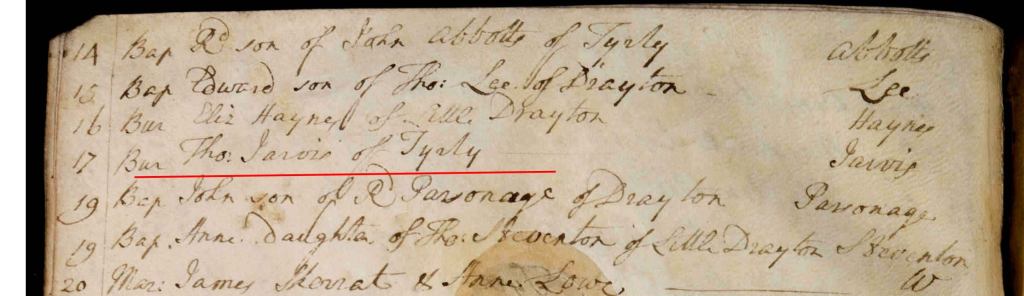 14 Bap Rd son of John Abbotts of Tyrly Abbotts
15 Bap Edward son of Tho: Lee of Drayton Lee
16 Bur Eliz Haynes of Little Drayton Haynes
17 Bur Tho: Jarvis of Tyrly Jarvis
19 Bap John son of Rd Parsonage of Drayton Parsonage
19 Bap Anne Daughter of Tho: Steventon of Little Drayton Steventon
20 Mar: James Skerrat & Anne Lowe W